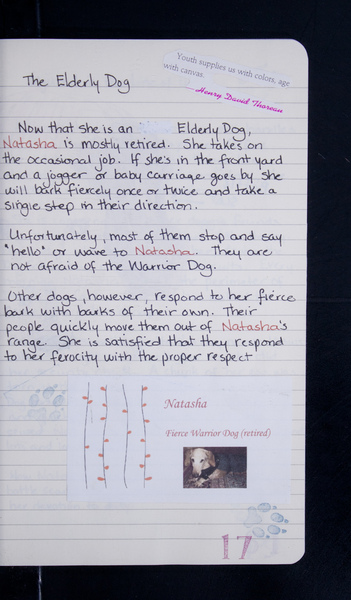 Youth supplies us with colors, age
with canvas.
Henry David Thoreau
The Elderly Dog
Now that she is an Elderly Dog,
Natasha is mostly retired. She takes on
the occasional job. If she's in the front yard
and a jogger or baby carriage goes by she
will bark fiercely once or twice and take a
single step in their direction.
Unfortunately, most of them stop and say
"hello" or wave to Natasha. They are
not afraid of the Warrior Dog.
Other dogs, however, respond to her fierce
bark with barks of their own. Their
people quickly move them out of Natasha's
range. She is satisfied that they respond
to her ferocity with the proper respect
Natasha
Fierce Warrior Dog (retired)
17